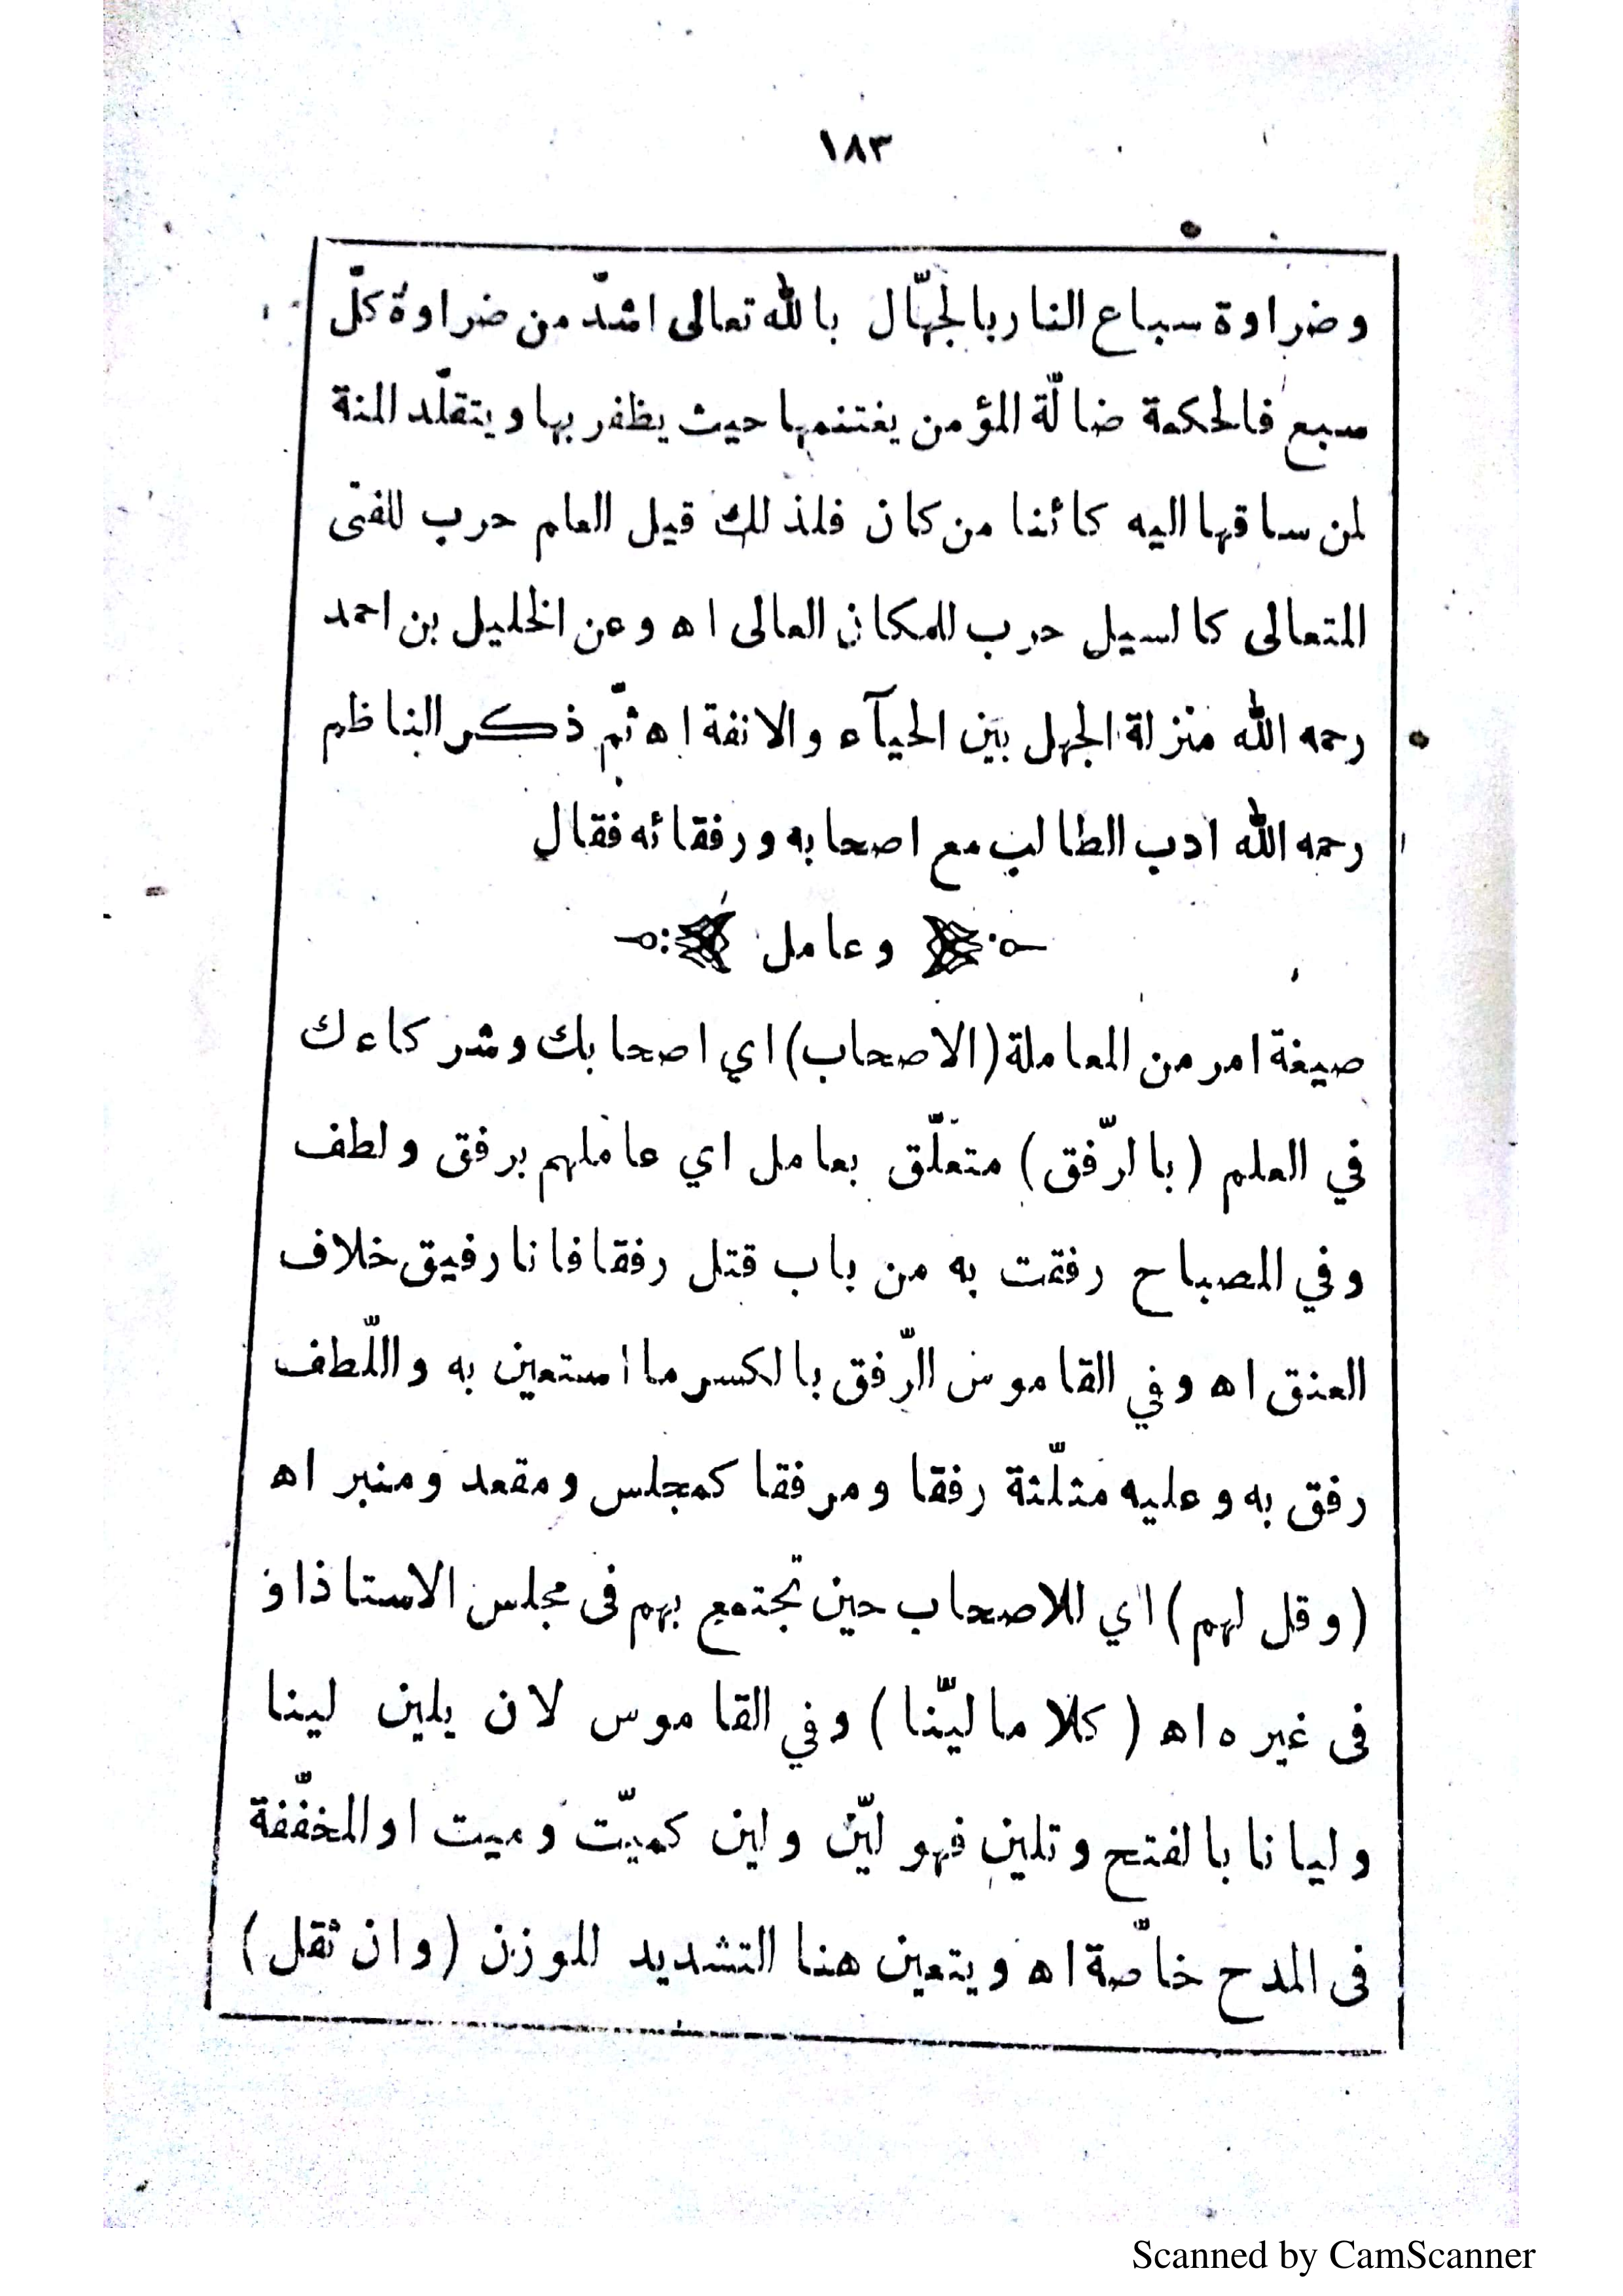 ١٨٣
وضراوة سباع النار بالجهّال بالله تعالى اشدّ من ضراوة كلّ
سبع فالحكمة ضالّة المؤمن يغتنمها حيث يظفر بها ويتقلّد المنة
لمن ساقها اليه كائنا من كان فلذلك قيل العلم حرب للفتى
المتعالى كالسيل حرب للمكان العالى اه وعن الخليل بن احمد
رحمه الله منزلة الجهل بين الحيآء والانفة اه ثمّ ذكر الناظم
رحمه الله ادب الطالب مع اصحابه ورفقائه فقال
وعامل
صيغة امر من المعاملة (الاصحاب) اي اصحابك وشركاءك
في العلم (بالرّفق) متعلّق بعامل اي عاملهم برفق ولطف
وفي المصباح رفقت به من باب قتل رفقا فانا رفيق خلاف
العنق اه وفي القاموس الرّفق بالكسر ما استعين به واللّطف
رفق به وعليه مثلّثة رفقا ومرفقا كمجلس ومقعد ومنبر اه
(وقل لهم) اي للاصحاب حين تجتمع بهم فى مجلس الاستاذ او
فى غيره اه (كلاما ليّنا) وفي القاموس لان يلين لينا
وليانا بالفتح وتلين فهو ليّن ولين كميّت وميت او المخفّفة
فى المدح خاصّة اه ويتعين هنا التشديد للوزن (وان ثقل)
Scanned by CamScanner